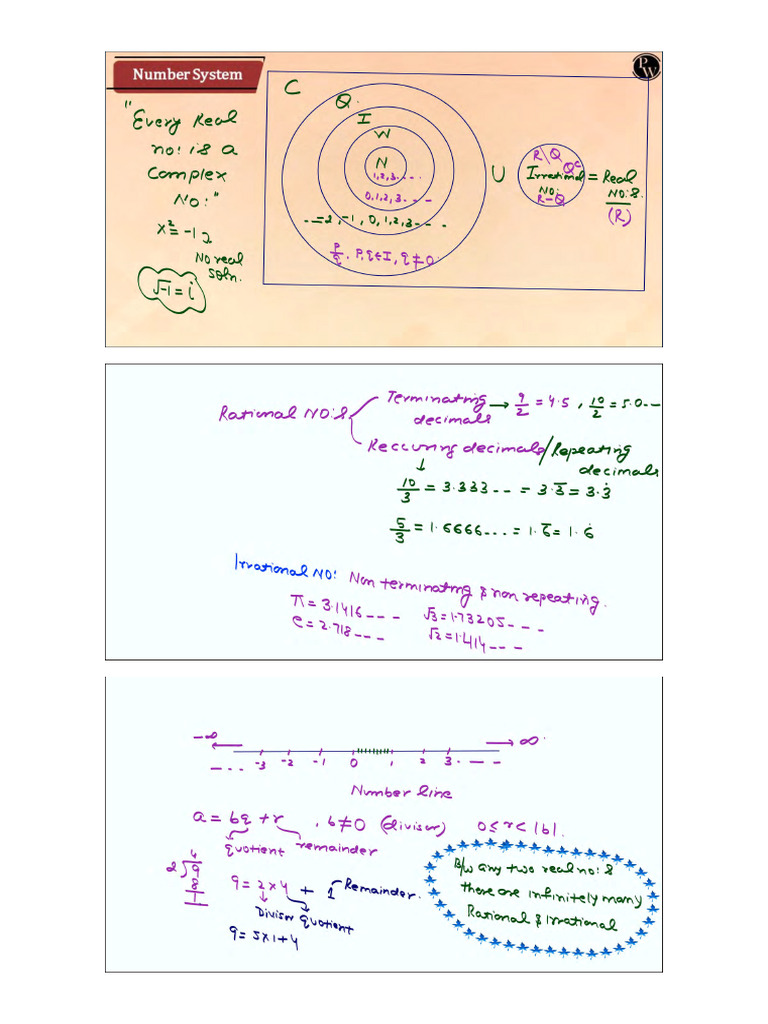 Number System
PW
"Every Real
no: is a
Complex
No:"
x² = -1
No real
soln.
√-1 = i
C
Q
I
W
N
1,2,3....
0,1,2,3....
...-2, -1, 0,1,2,3...
p/q, p,q ∈ I, q ≠ 0
U
R\Q
Qᶜ
Irrational
NO:
R-Q
= Real
NO:S.
(R)
Rational NO:S
Terminating
decimals
→ 9/2 = 4.5, 10/2 = 5.0--
Reccuring decimals/Repeating
decimals
10/3 = 3.333-- = 3.3̅ = 3.3̇
5/3 = 1.6666... = 1.6̅ = 1.6̇
Irrational NO: Non terminating & non repeating.
π = 3.1416---
√3 = 1.73205---
e = 2.718---
√2 = 1.414---
-∞
∞
--- -3 -2 -1 0 1 2 3.---
Number line
a = bq + r , b≠0 (divisor) 0≤r<|b|.
quotient remainder
4
2)9
8
1
9 = 2×4 + 1 Remainder.
Divisor quotient
9 = 5×1+4
B/w any two real no:s
there are infinitely many
Rational & Irrational